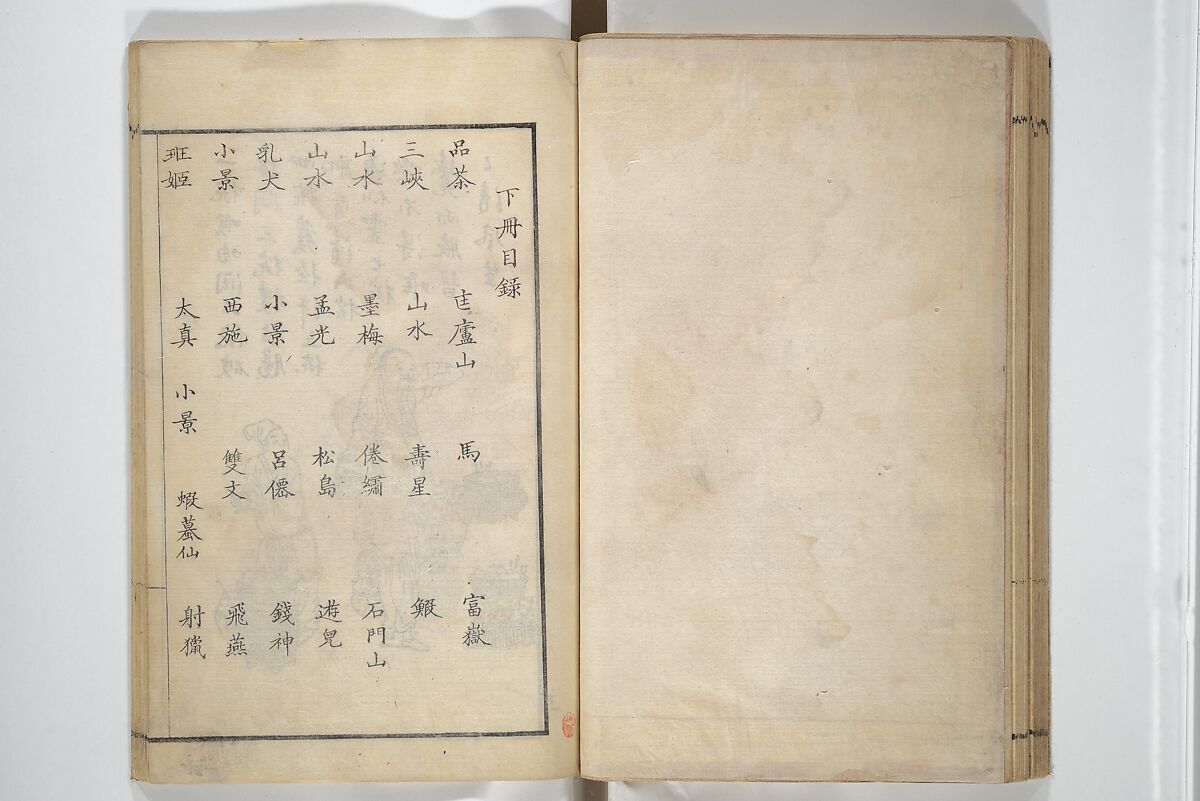 下冊目錄
品茶 匡廬山 馬 富嶽
三峽 山水 壽星 鰕
山水 墨梅 倦繡 石門山
山水 孟光 松島 遊兒
乳犬 小景 呂僊 錢神
小景 西施 雙文 飛燕
班姬 太真 小景 蝦蟇仙 射獵